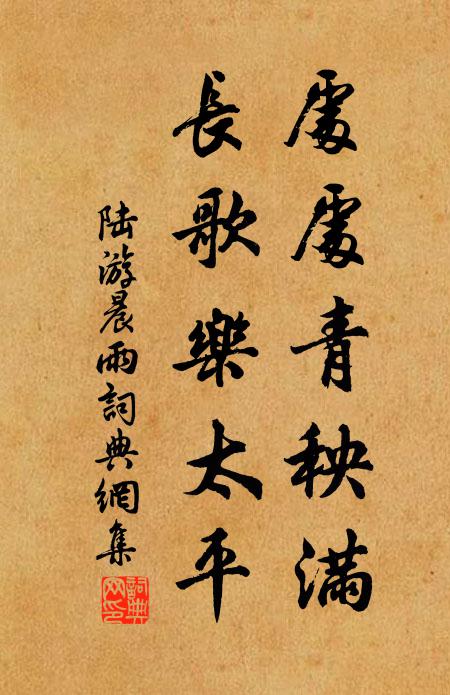 處處青秧滿
長歌樂太平
陆游晨雨詞典網集
詞典网印